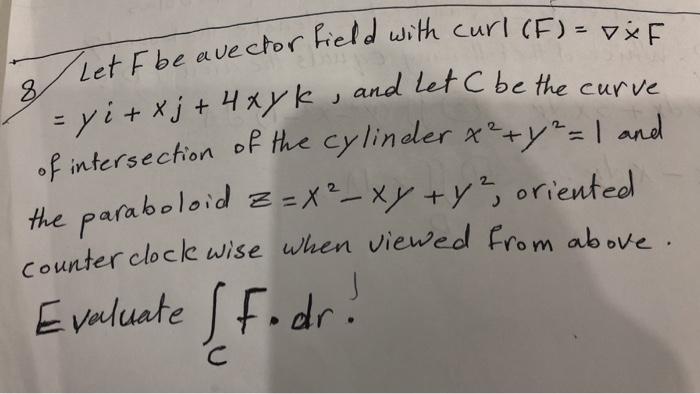 8/ Let F be a vector field with curl (F) = ∇ × F
= yi + xj + 4xyk, and Let C be the curve
of intersection of the cylinder x²+y²=1 and
the paraboloid z = x² - xy + y², oriented
counter clock wise when viewed from above.
Evaluate ∫F.dr!
C